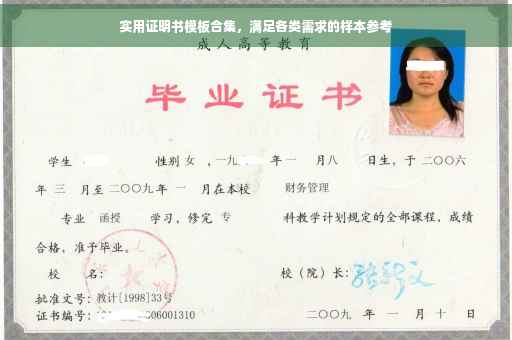 实用证明书模板合集，满足各类需求的样本参考
成人高等教育
毕业证书
学生 性别 女 ，一九 年 一 月八 日生，于 二〇〇六
年 三 月至 二〇〇九 年 一 月在本校 财务管理
专业 函授 学习，修完 专 科教学计划规定的全部课程，成绩
合格，准予毕业。
校 名： 校（院）长：
批准文号：教计[1998]33号
证书编号： 06001310 二〇〇九 年 一 月 十 日